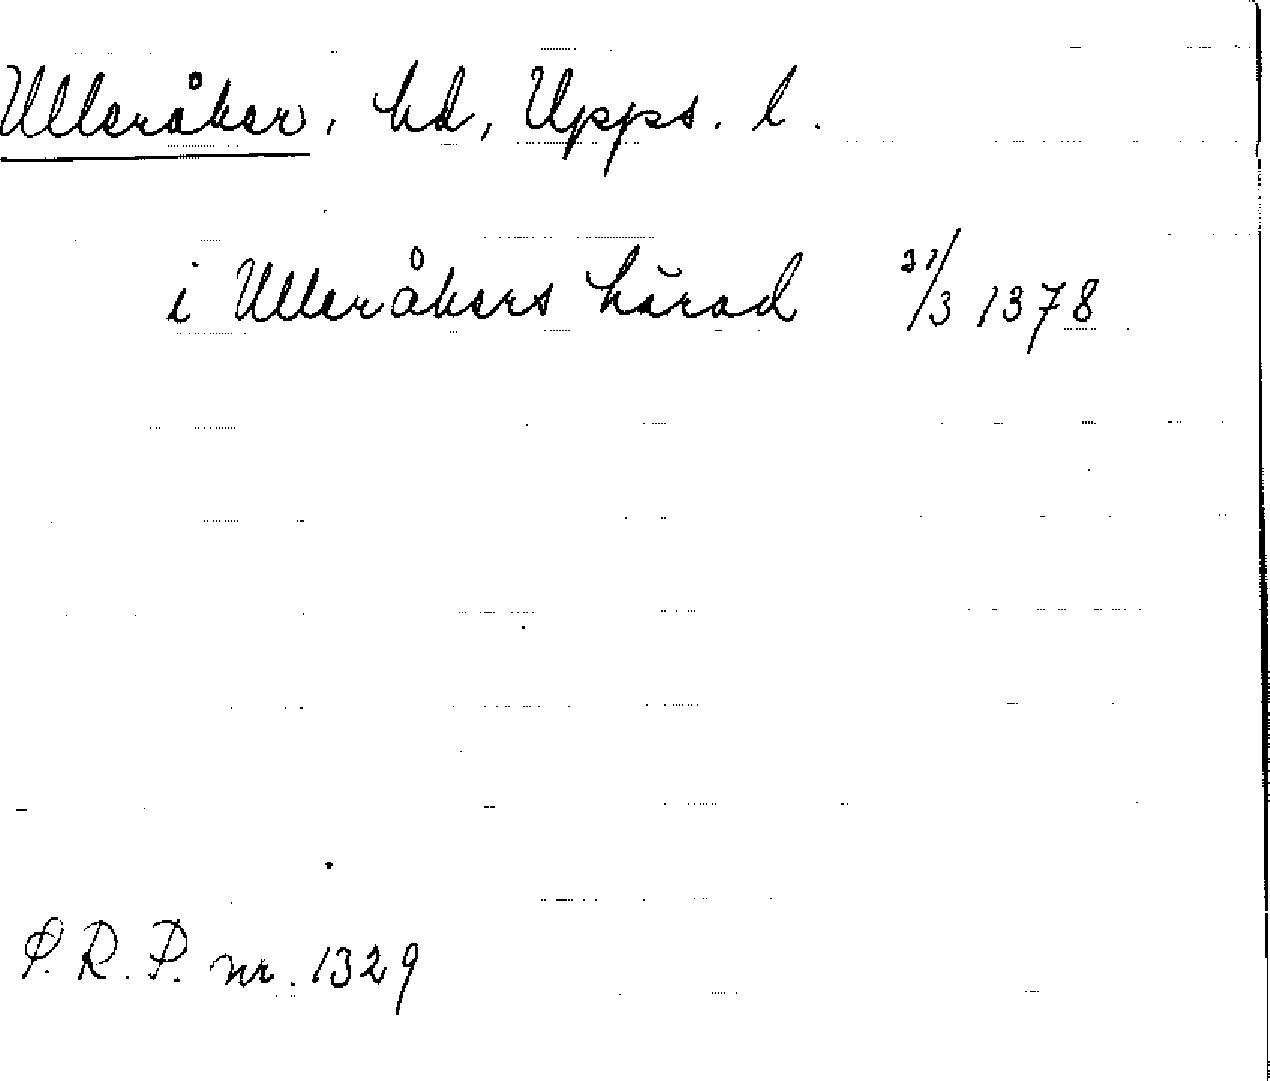 Ulleråker, hd, Upps. l.
i Ulleråkers härad 31/3 1378
S.R.P. nr. 1329